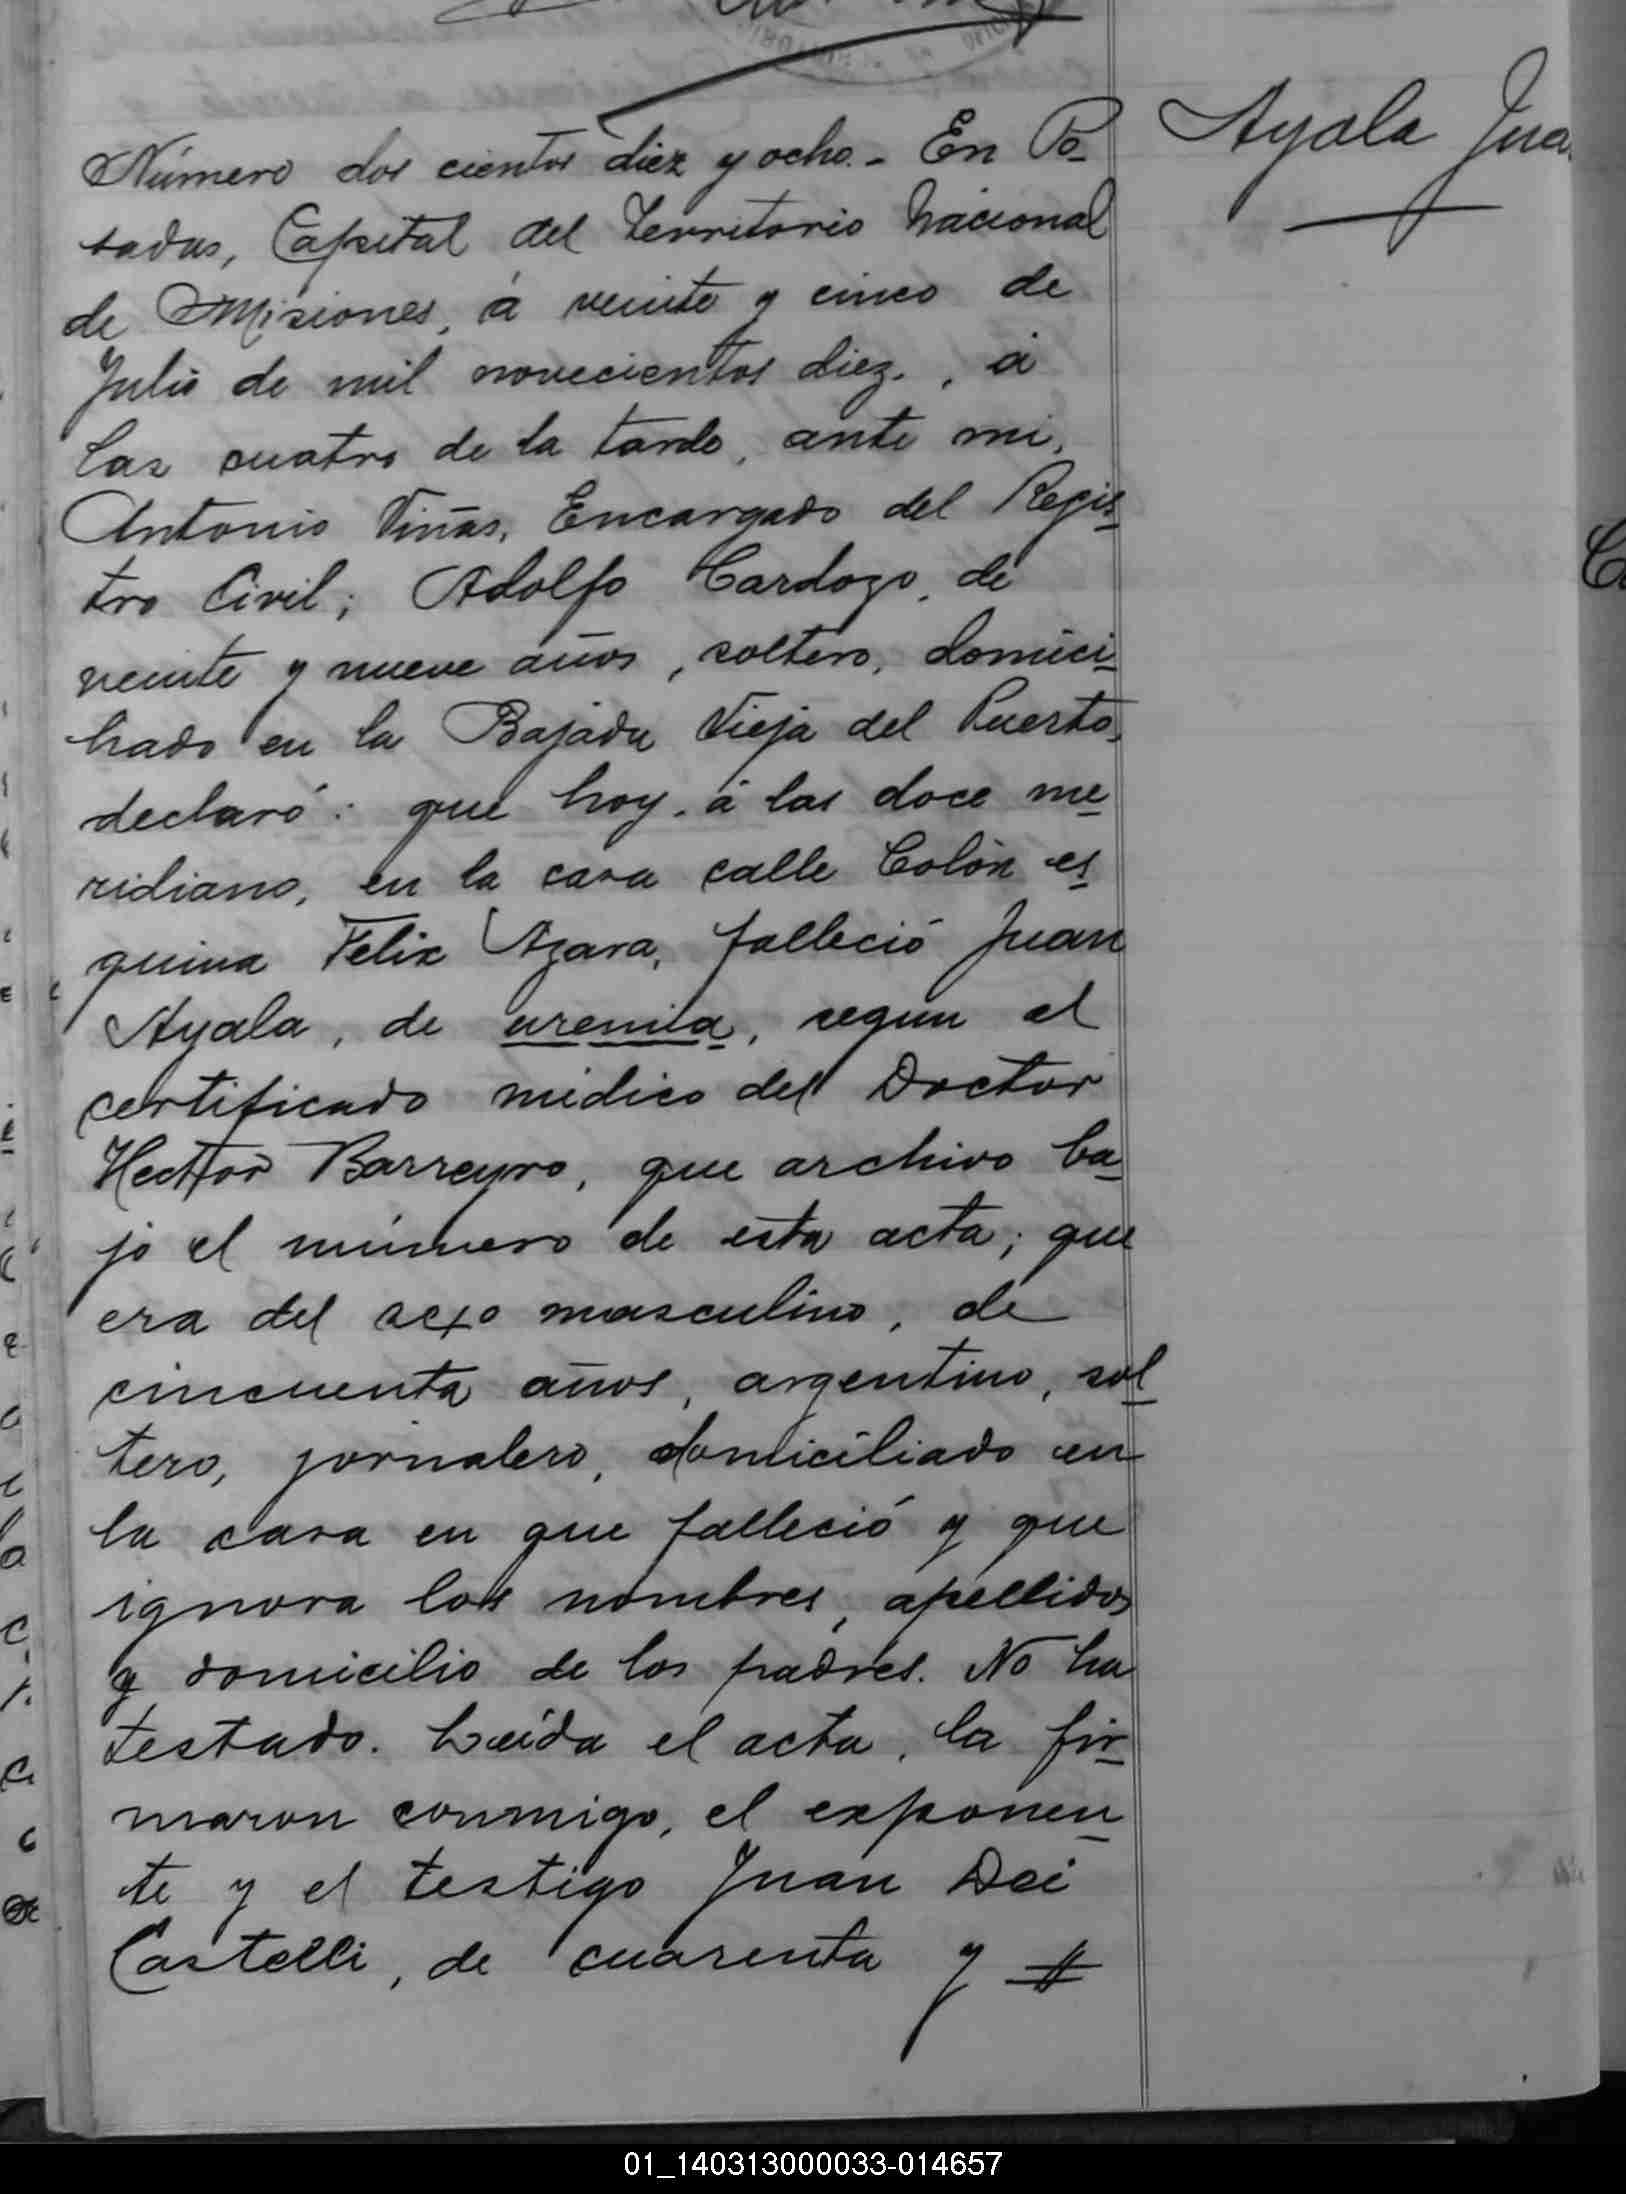 Ayala Jua
Número dos cientos diez y ocho.- En Po-
sadas, Capital del Territorio Nacional
de Misiones, á veinte y cinco de
Julio de mil novecientos diez., á
las cuatro de la tarde, ante mi,
Antonio Viñas, Encargado del Regis-
tro Civil; Adolfo Cardozo, de
veinte y nueve años, soltero, domici-
liado en la Bajada Vieja del Puerto,
declaró: que hoy, á las doce me-
ridiano, en la casa calle Colón es-
quina Felix Azara, falleció Juan
Ayala, de uremia, segun el
certificado médico del Doctor
Hector Barreyro, que archivo ba-
jo el número de esta acta; que
era del sexo masculino, de
cincuenta años, argentino, sol-
tero, jornalero, domiciliado en
la casa en que falleció y que
ignora los nombres, apellidos
y domicilio de los padres. No ha
testado. Leída el acta, la fir-
maron conmigo, el exponen-
te y el testigo Juan Dei
Castelli, de cuarenta y #
01_140313000033-014657